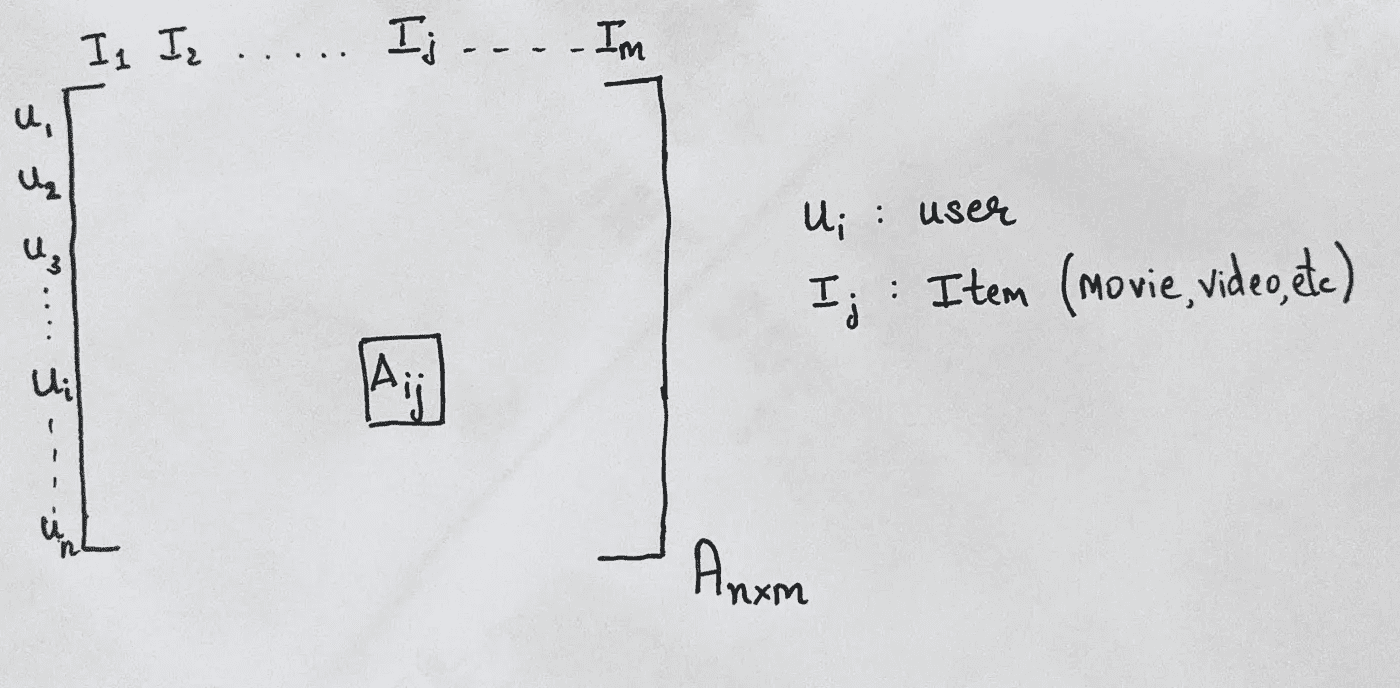 I₁ I₂ ..... Iⱼ ----Iₘ
u₁
u₂
u₃
⋮
uᵢ
⋮
uₙ
Aᵢⱼ
Aₙₓₘ
uᵢ : user
Iⱼ : Item (movie, video, etc)